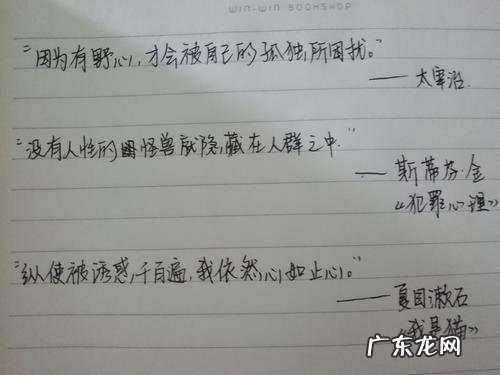 WIN-WIN BOOKSHOP
"因为有野心，才会被自己的孤独所困扰。"
——太宰治.
"没有人性的怪兽就隐藏在人群之中."
——斯蒂芬·金
《犯罪心理》
"纵使被诱惑千百遍，我依然心如止心。"
——夏目漱石
《我是猫》
广东龙网